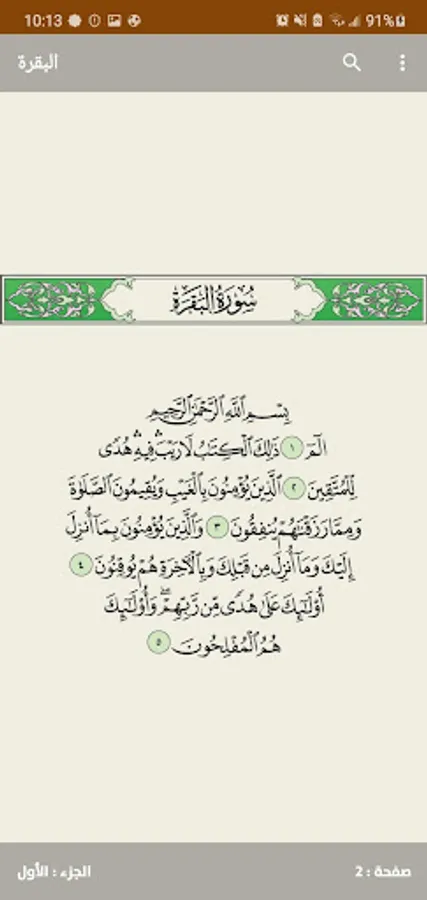 10:13
91%
البقرة
سُورَةُ البَقَرَةِ
بِسْمِ اللَّهِ الرَّحْمَٰنِ الرَّحِيمِ
الٓمٓ ١ ذَٰلِكَ الْكِتَٰبُ لَا رَيْبَ ۛ فِيهِ ۛ هُدًى
لِّلْمُتَّقِينَ ٢ الَّذِينَ يُؤْمِنُونَ بِالْغَيْبِ وَيُقِيمُونَ الصَّلَوٰةَ
وَمِمَّا رَزَقْنَٰهُمْ يُنفِقُونَ ٣ وَالَّذِينَ يُؤْمِنُونَ بِمَآ أُنزِلَ
إِلَيْكَ وَمَآ أُنزِلَ مِن قَبْلِكَ وَبِالْءَاخِرَةِ هُمْ يُوقِنُونَ ٤
أُوْلَٰٓئِكَ عَلَىٰ هُدًى مِّن رَّبِّهِمْ ۖ وَأُوْلَٰٓئِكَ
هُمُ الْمُفْلِحُونَ ٥
صفحة : 2
الجزء : الأول